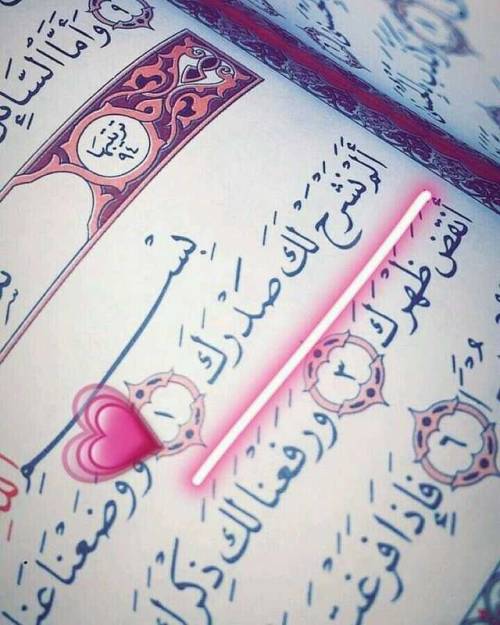 ٩ وَأَمَّا السَّائِ
ترتيبها ٩٤
بِسْ
أَلَمْ نَشْرَحْ لَكَ صَدْرَكَ ١ وَوَضَعْنَا عَنْ
أَنْقَضَ ظَهْرَكَ ٣ وَرَفَعْنَا لَكَ ذِكْرَكَ
٦ فَإِذَا فَرَغْتَ